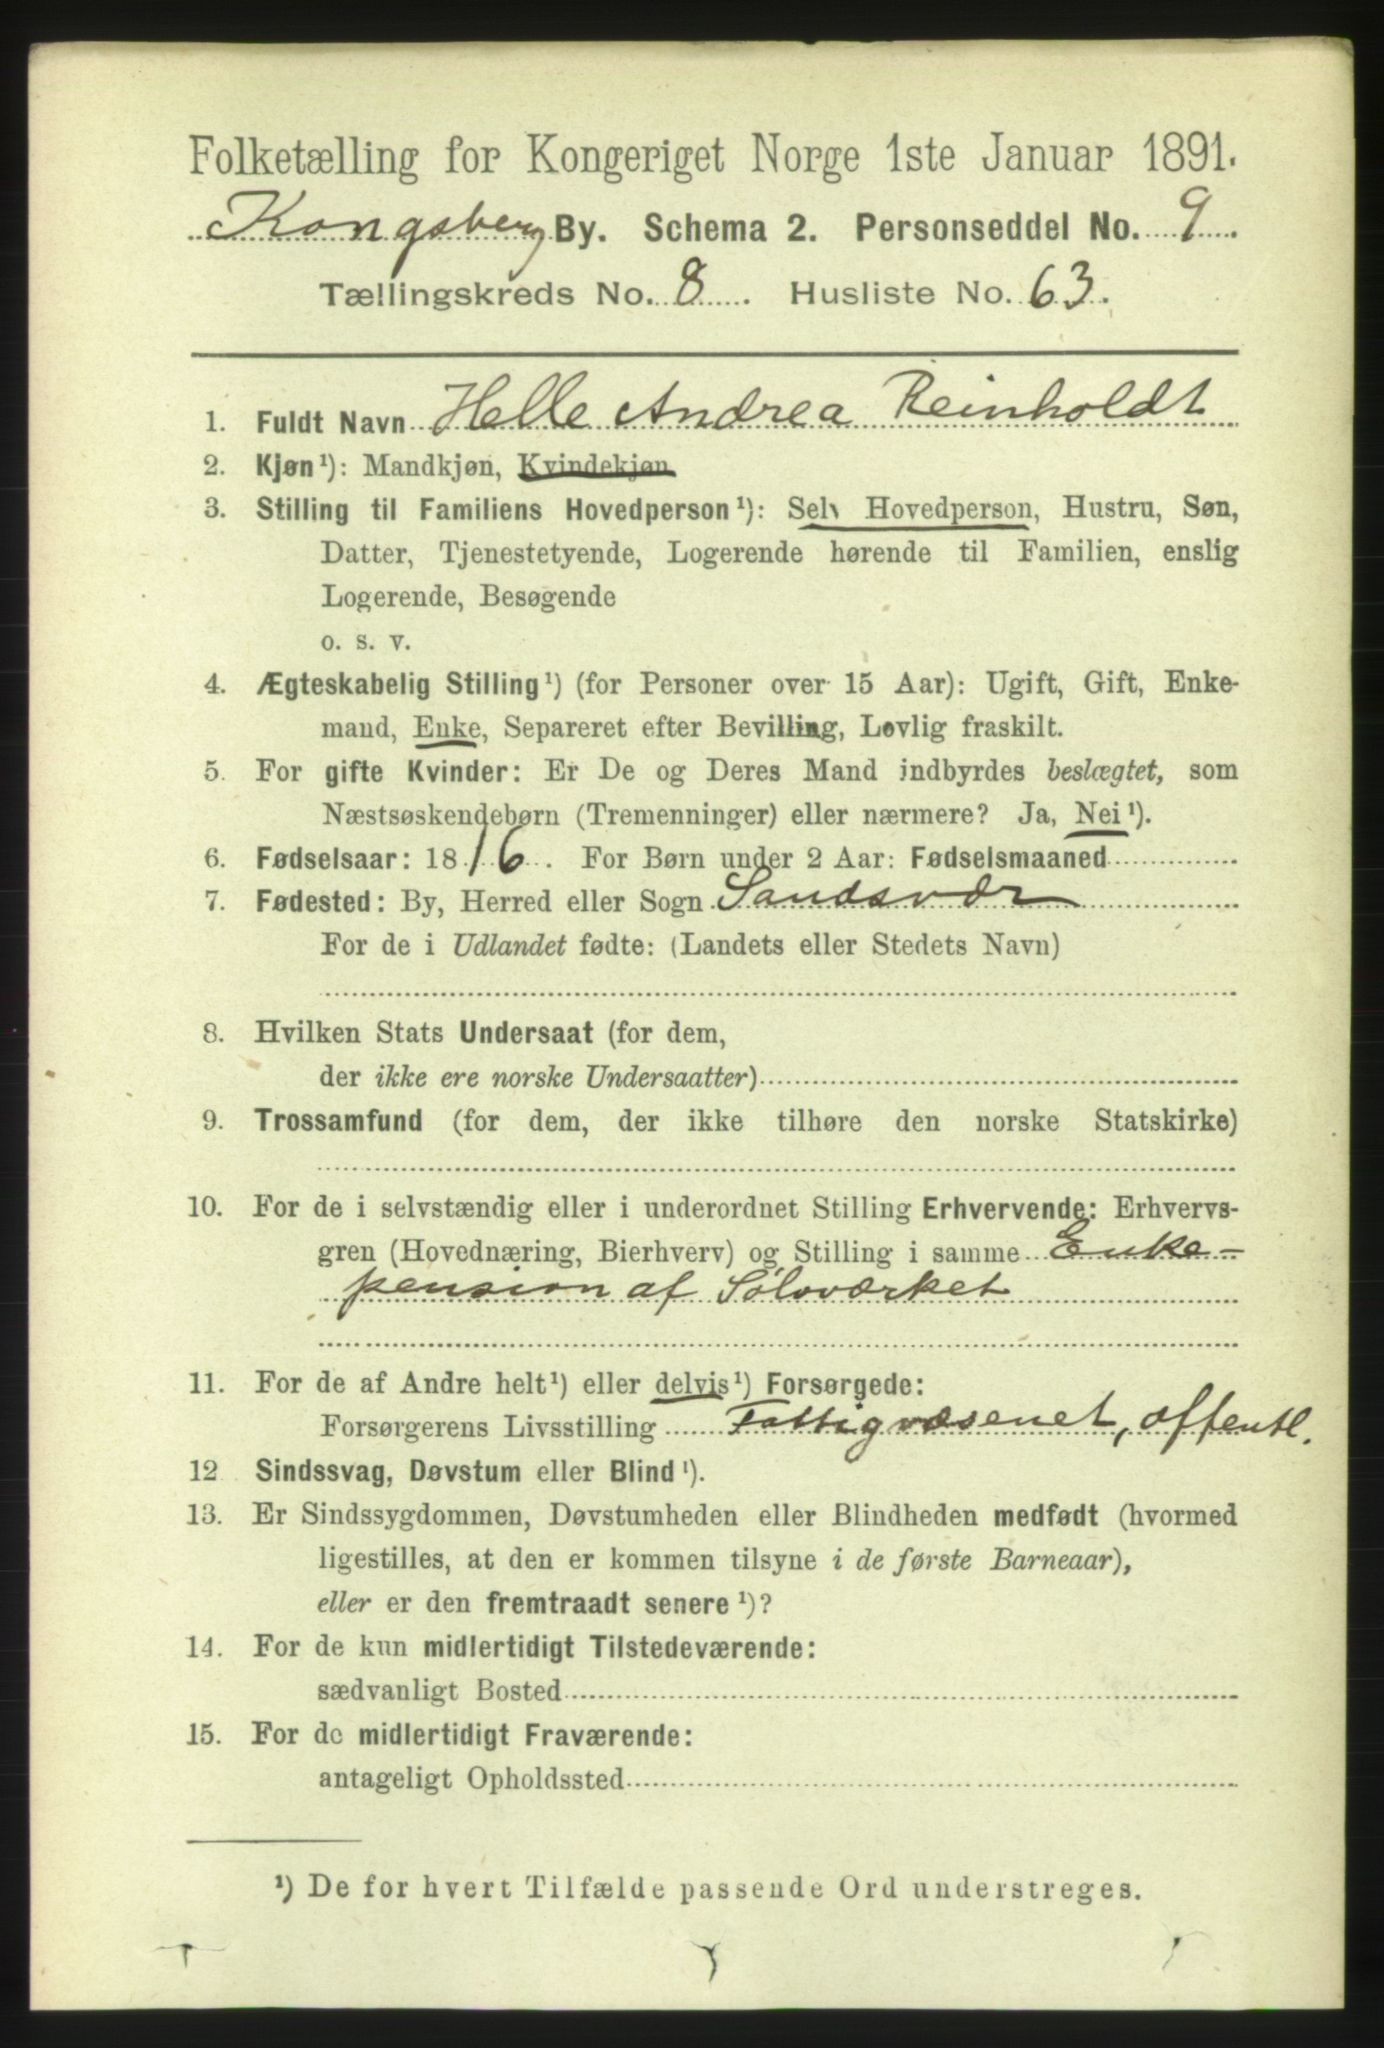 Folketælling for Kongeriget Norge 1ste Januar 1891.
Kongsberg By. Schema 2. Personseddel No. 9.
Tællingskreds No. 8. Husliste No. 63.
1. Fuldt Navn Helle Andrea Reinholdt
2. Kjøn¹): Mandkjøn, Kvindekjøn
3. Stilling til Familiens Hovedperson¹): Selv Hovedperson, Hustru, Søn,
Datter, Tjenestetyende, Logerende hørende til Familien, enslig
Logerende, Besøgende
o. s. v.
4. Ægteskabelig Stilling¹) (for Personer over 15 Aar): Ugift, Gift, Enke-
mand, Enke, Separeret efter Bevilling, Lovlig fraskilt.
5. For gifte Kvinder: Er De og Deres Mand indbyrdes beslægtet, som
Næstsøskendebørn (Tremenninger) eller nærmere? Ja, Nei¹).
6. Fødselsaar: 1816. For Børn under 2 Aar: Fødselsmaaned
7. Fødested: By, Herred eller Sogn Sandsvær
For de i Udlandet fødte: (Landets eller Stedets Navn)
8. Hvilken Stats Undersaat (for dem,
der ikke ere norske Undersaatter)
9. Trossamfund (for dem, der ikke tilhøre den norske Statskirke)
10. For de i selvstændig eller i underordnet Stilling Erhvervende: Erhvervs-
gren (Hovednæring, Bierhverv) og Stilling i samme Enke-
pension af Sølvværket
11. For de af Andre helt¹) eller delvis¹) Forsørgede:
Forsørgerens Livsstilling Fattigvæsenet, offentl.
12 Sindssvag, Døvstum eller Blind¹).
13. Er Sindssygdommen, Døvstumheden eller Blindheden medfødt (hvormed
ligestilles, at den er kommen tilsyne i de første Barneaar),
eller er den fremtraadt senere¹)?
14. For de kun midlertidigt Tilstedeværende:
sædvanligt Bosted
15. For de midlertidigt Fraværende:
antageligt Opholdssted
¹) De for hvert Tilfælde passende Ord understreges.